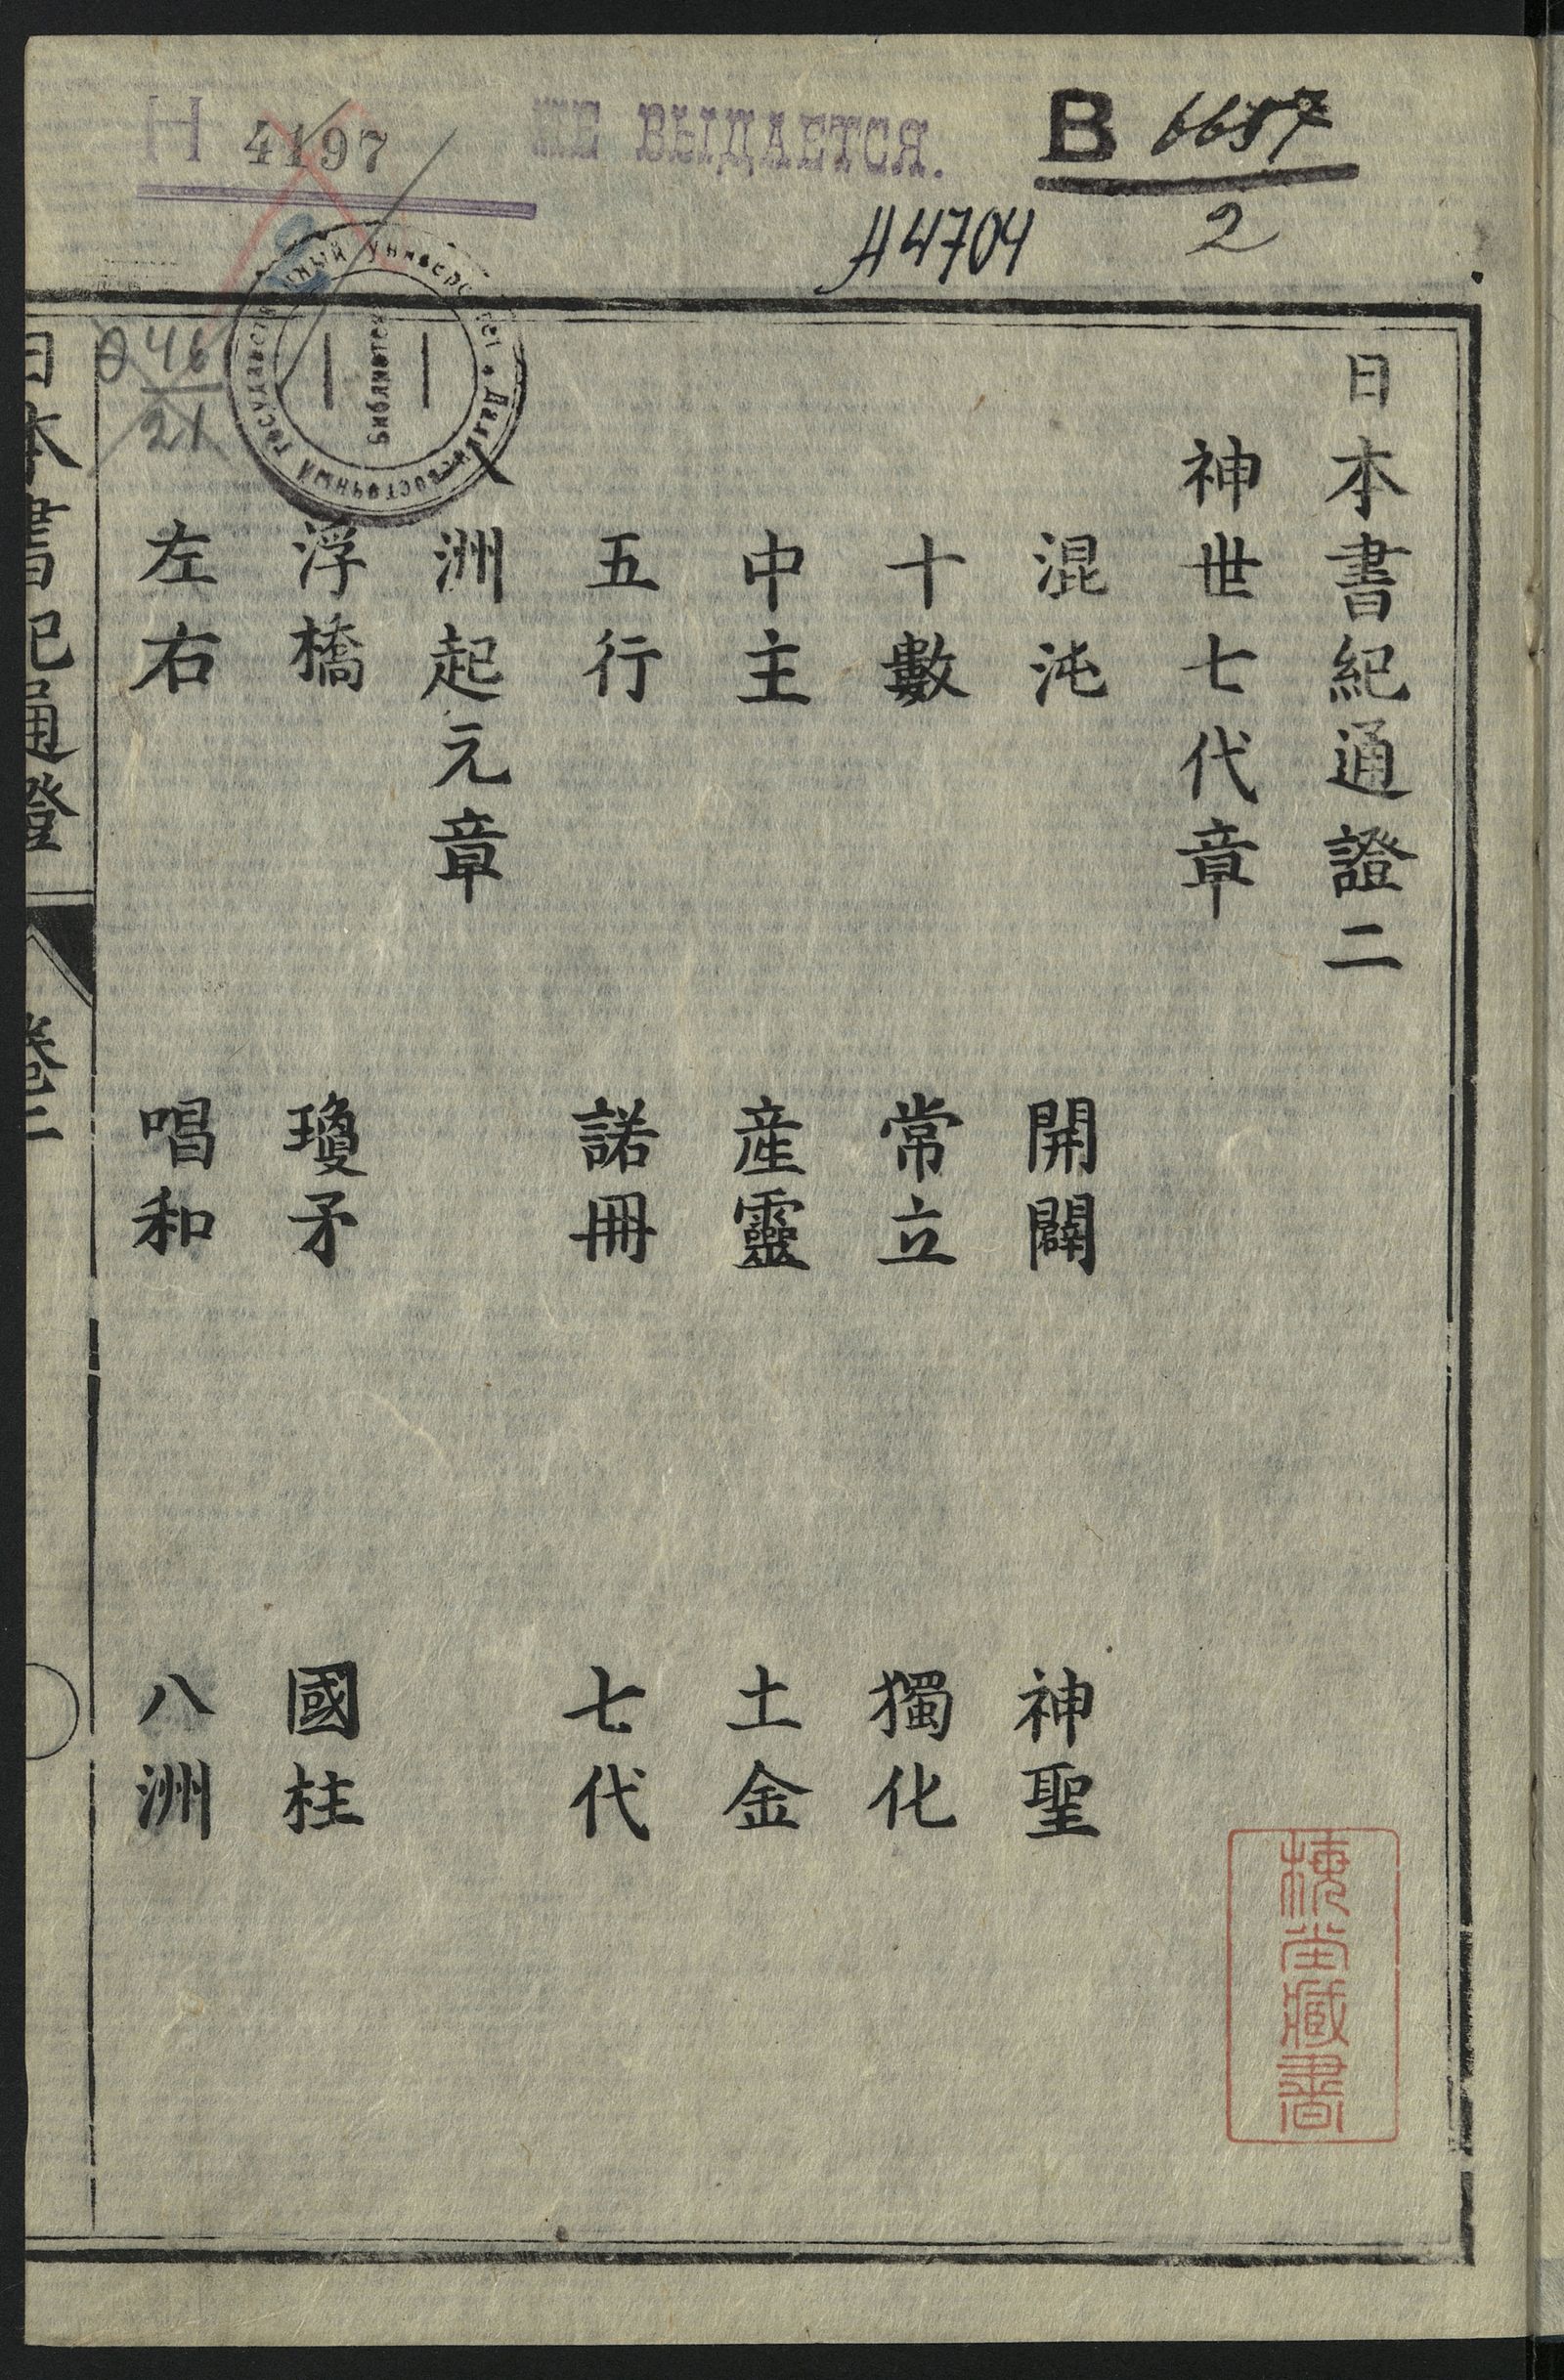 4197
НЕ ВЫДАЕТСЯ.
В 6657
2
A4704
46
21
Дальневосточный Государственный Университет
Библиотека
日本書紀通證二
神世七代章
混沌 開闢 神聖
十數 常立 獨化
中主 産靈 土金
五行 諾冊 七代
八洲起元章
浮橋 瓊矛 國柱
左右 唱和 八洲
日本書紀通證 卷二
藏書